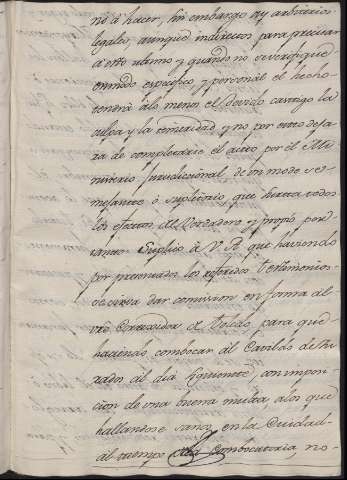 no á hacer, sin embargo ay arbitrios
legales, aunque indirectos para precisar
á esto mismo y quando no se verifique
en modo especifico, y personal el hecho
tendrá á lo menos el devido castigo la
culpa y la temeridad, y no por esto deja-
ra de completarse el acto por el Mi-
nisterio jurisdicional de un modo se-
mejante ó supletorio que surta todos
los efectos del verdadero y propio por
tanto Suplico á V. A. que haviendo
por presentados los referidos testimonios
se sirva dar comision en forma al
vro Correxidor de Toledo, para que
haciendo combocar al Cavildo de Ju-
rados al dia siguiente, con imposi-
cion de una buena multa, á los que
hallandose sanos en la Ciudad
al tiempo combocatoria no